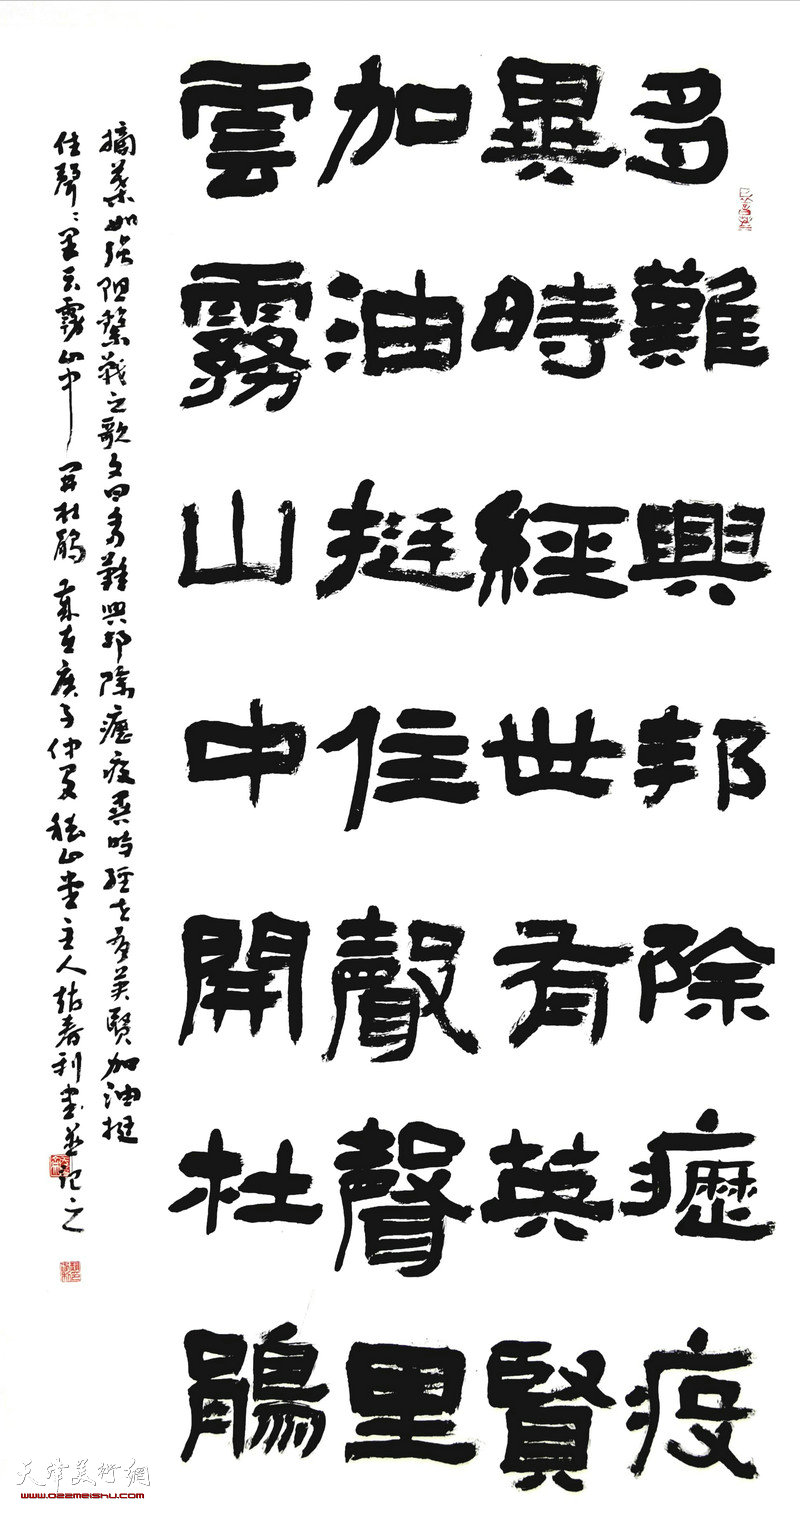 多難興邦除癧疫
異時經世有英賢
加油挺住聲聲里
雲霧山中開杜鵑
摘葉如强阻擊戰之歌文曰多難興邦除癧疫異時經世有英賢加油挺
住聲〻里雲霧山中開杜鵑 歲在庚子仲夏 主人趙春利書並記之
天津美術網
www.022meishu.com